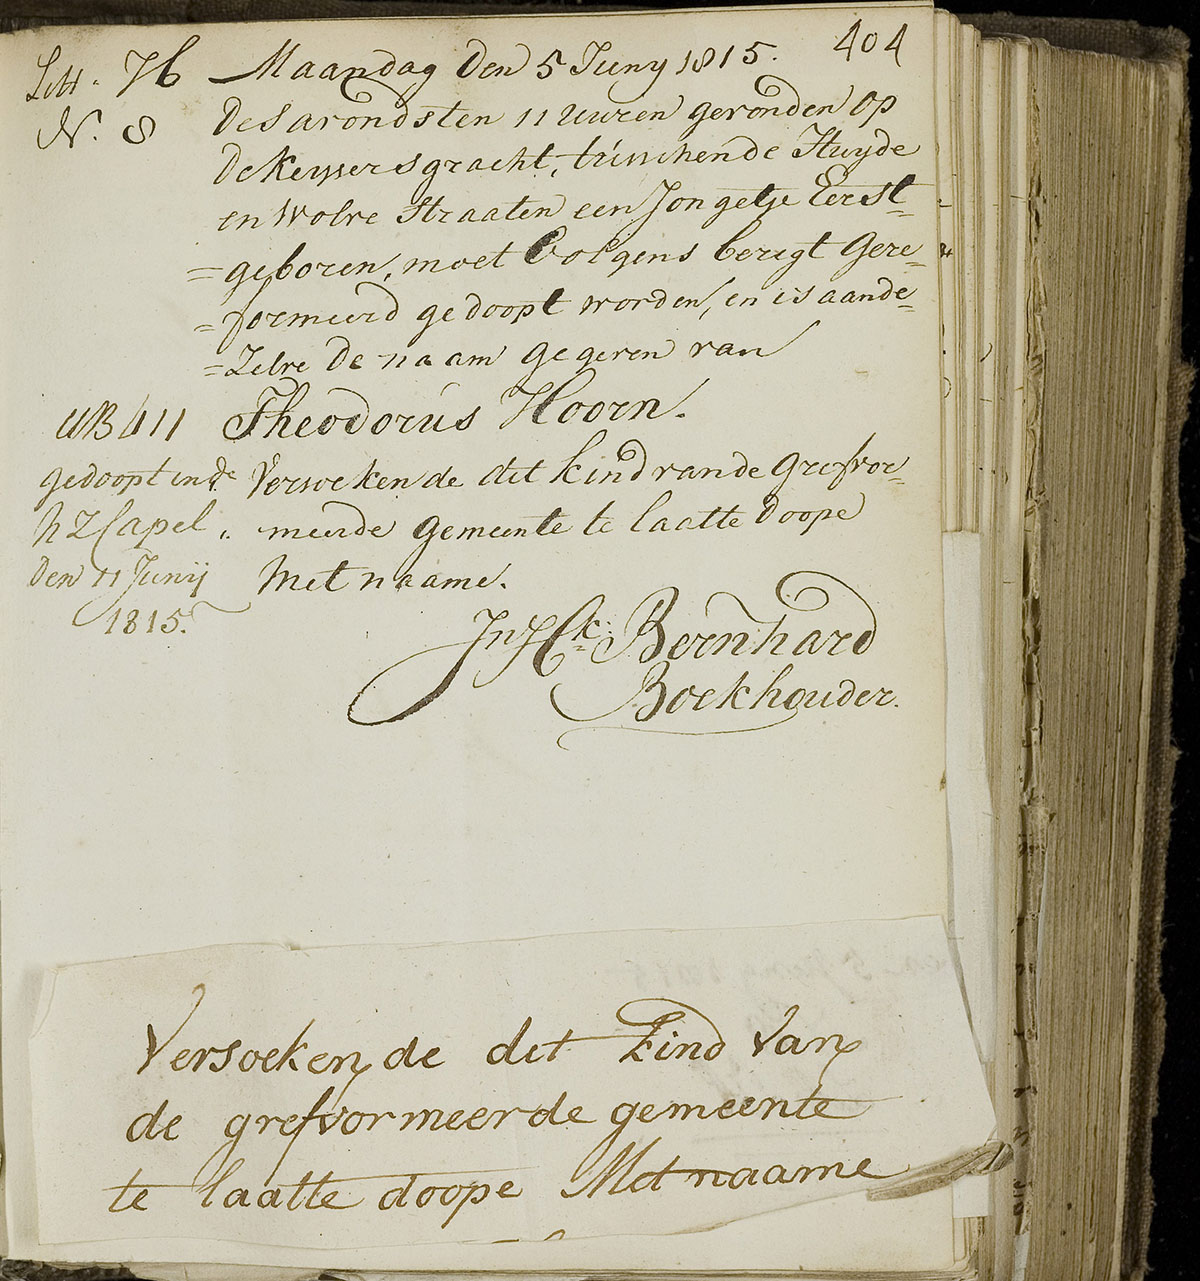 404
Litt. H
Maandag Den 5 Juny 1815.
N. 8
Des avonds ten 11 Uuren gevonden op
De Keysersgracht, tusschende Huyde
en Wolve Straaten een Jongetje Eerst-
=geboren, moet Volgens berigt Gere=
=formeerd gedoopt worden, en is aande=
=Zelve De naam gegeven van
Theodorus Hoorn.
gedoopt in de
NZ Capel
Den 11 Junij
1815.
Versoeken de dit kind vande Grefvor-
meerde gemeente te laatte doope
Met naame.
Bernhard
Boekhouder.
Versoeken de dit kind Van
de grefvormeerde gemeente
te laatte doope Met naame